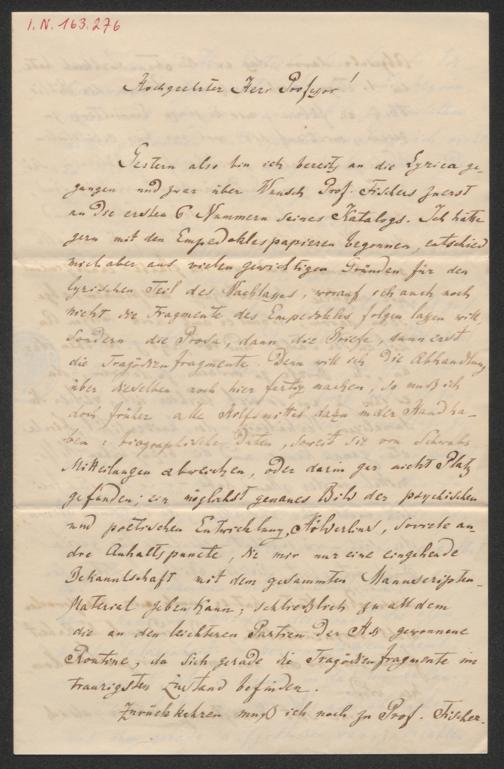 I. N. 163.276
Hochgeehrter Herr Professor!
Gestern also bin ich bereits an die Lyrica ge-
gangen und zwar über Wunsch Prof. Fischers zuerst
an die ersten 6 Nummern seines Katalogs. Ich hätte
gern mit den Empedoklespapieren begonnen, entschied
mich aber aus vielen gewichtigen Gründen für den
lyrischen Teil des Nachlasses, worauf ich auch noch
nicht die Fragmente des Empedokles folgen lassen will,
sondern die Prosa, dann die Briefe, dann erst
die Tragödienfragmente. Denn will ich die Abhandlung
über dieselben noch hier fertig machen, so muß ich
doch früher alle Hilfsmittel dazu in der Hand ha-
ben: biographische Daten, soweit sie von Schwabs
Mitteilungen abweichen, oder darin gar nicht Platz
gefunden; ein möglichst genaues Bild der psychischen
und poëtischen Entwicklung Hölderlins, sowie an-
dre Anhaltspuncte, die mir nur eine eingehende
Bekanntschaft mit dem gesammten Manuscripten-
Material geben kann; schließlich zu all dem
die an den leichteren Partien der Hss gewonnene
Routine, da sich gerade die Tragödienfragmente im
traurigsten Zustand befinden.
Zurückkehren muß ich noch zu Prof. Fischer.